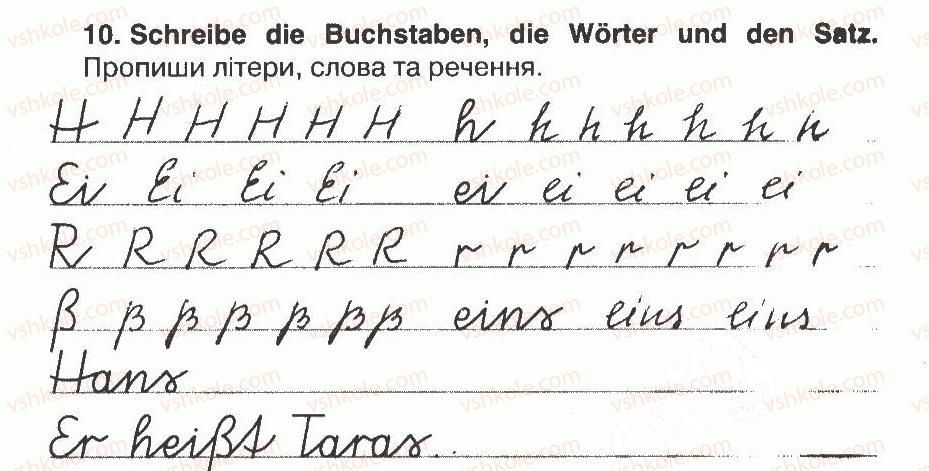 10. Schreibe die Buchstaben, die Wörter und den Satz.
Пропиши літери, слова та речення.
H H H H H H h h h h h h h
Ei Ei Ei Ei ei ei ei ei ei
R R R R R R r r r r r r r r
ß ß ß ß ß ß ß eins eins eins
Hans
Er heißt Taras.